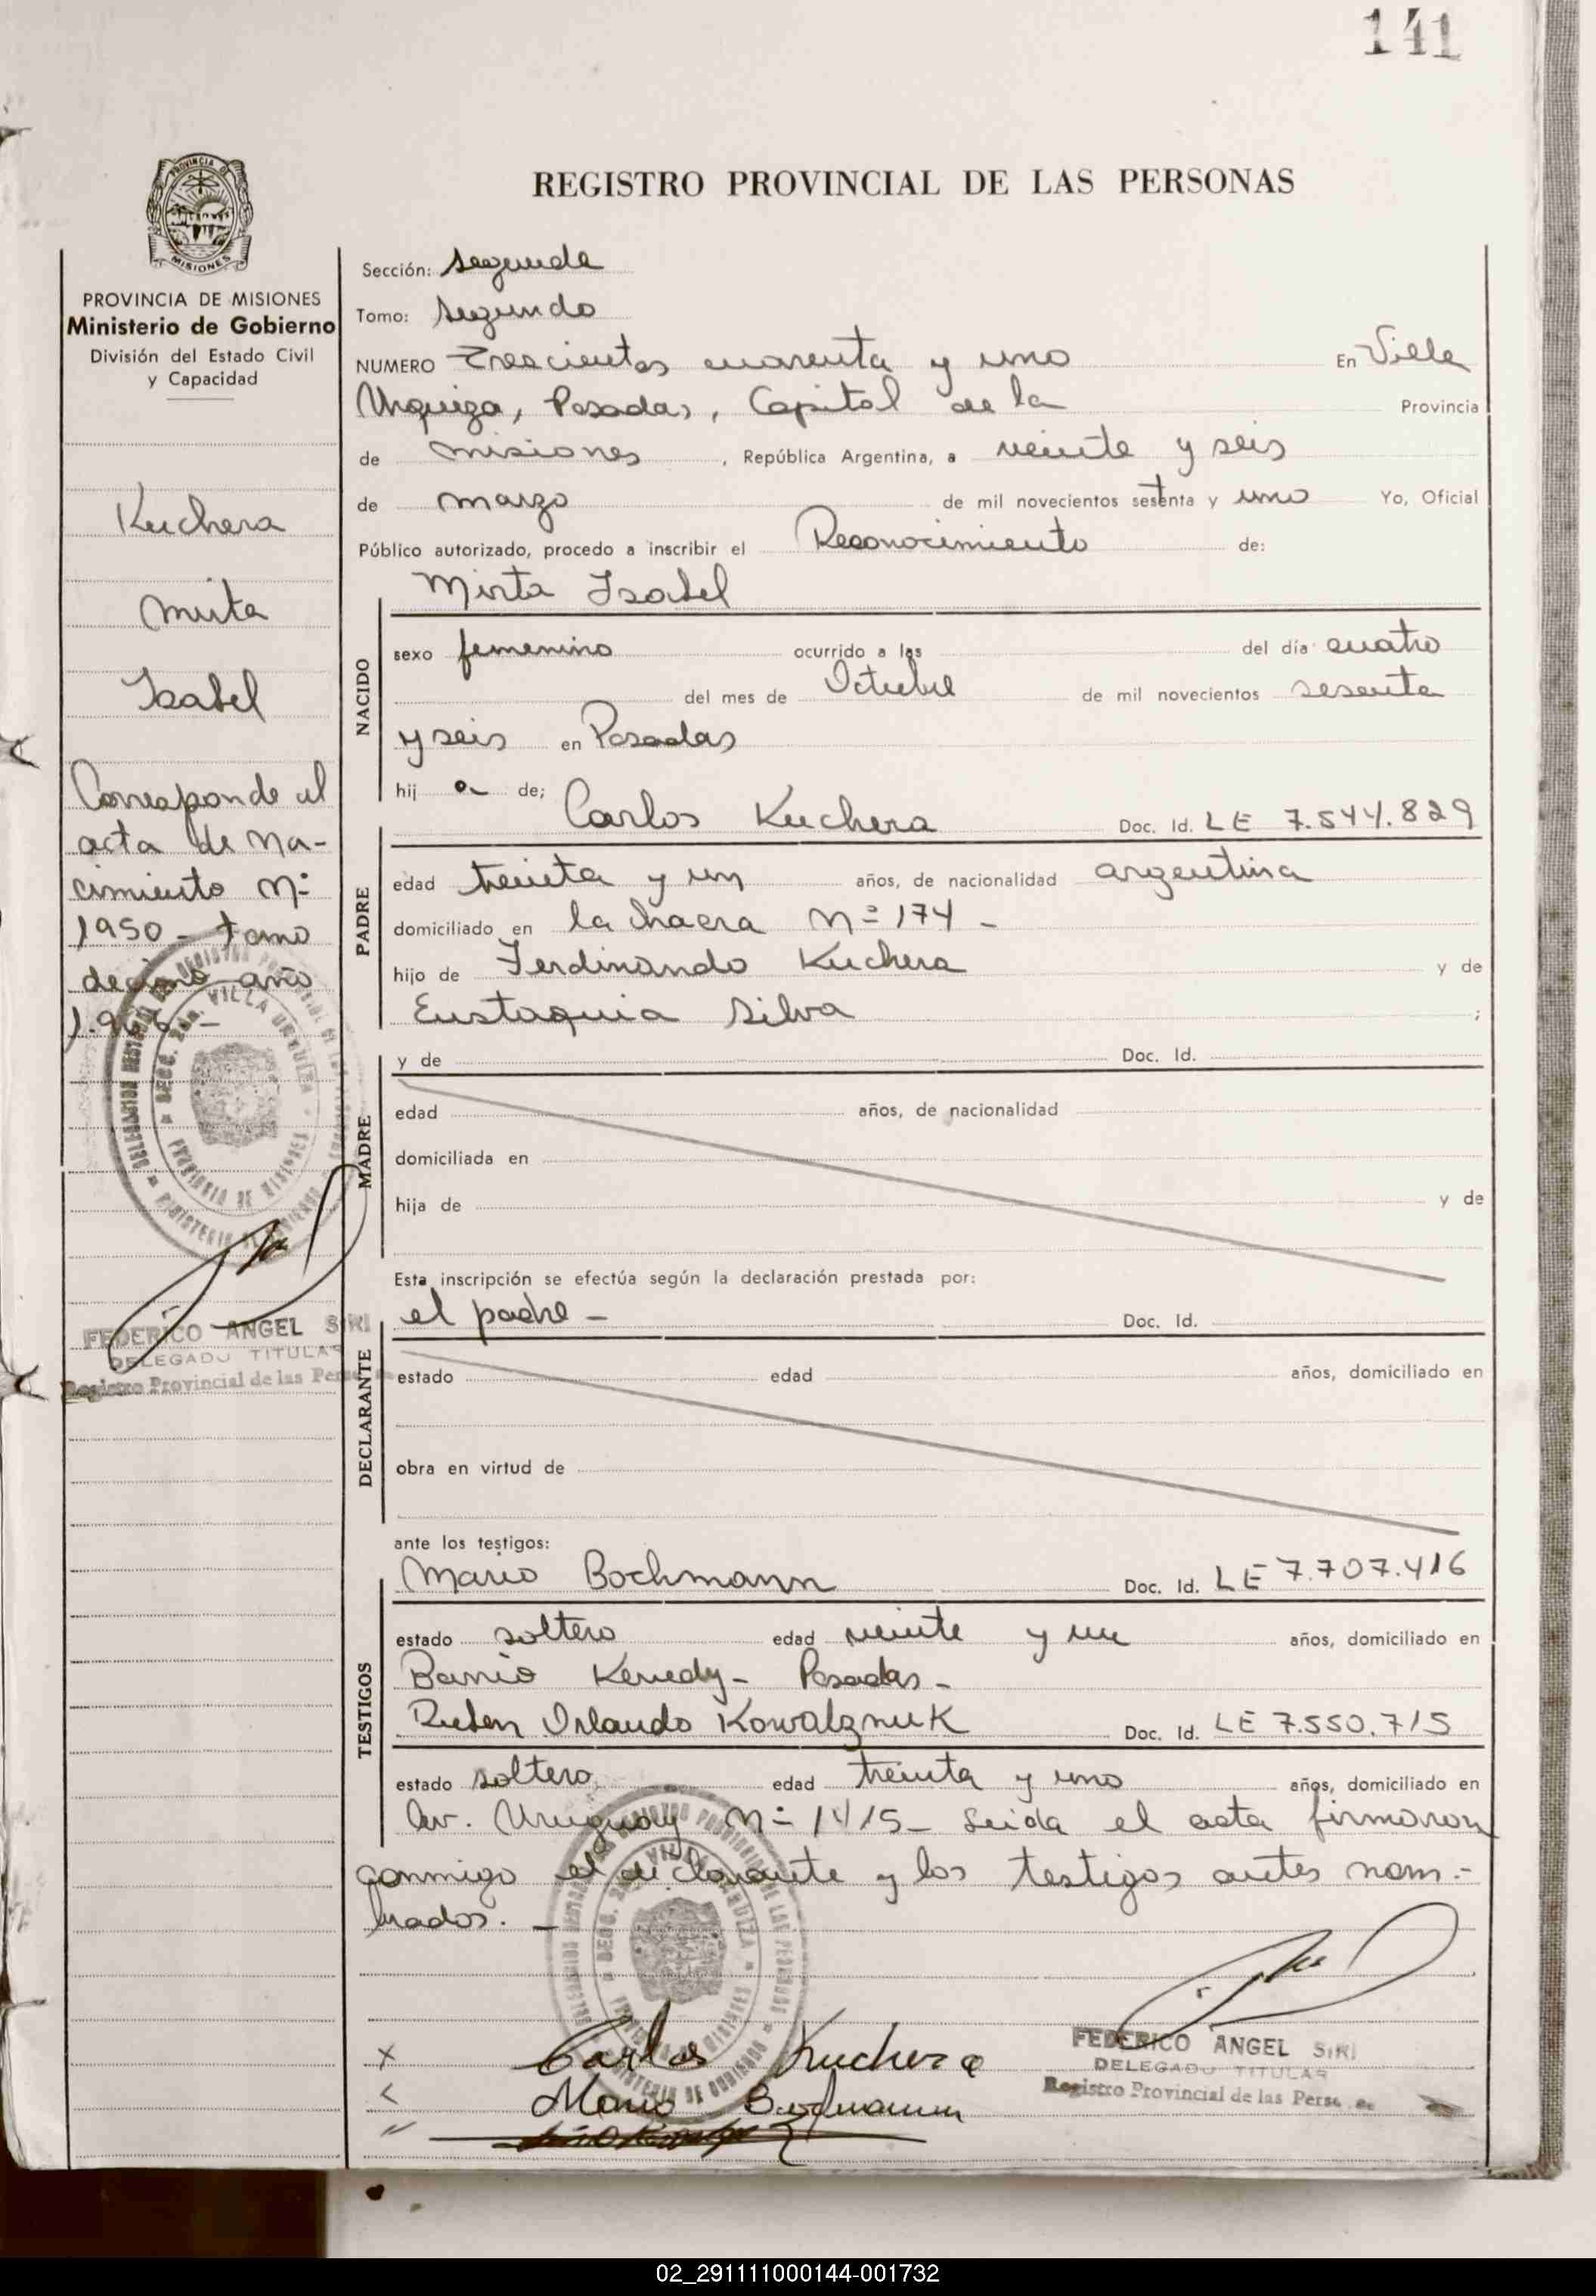 141
REGISTRO PROVINCIAL DE LAS PERSONAS
PROVINCIA DE MISIONES
Ministerio de Gobierno
División del Estado Civil
y Capacidad
Kuchera
Mirta
Isabel
Corresponde al
acta de Na-
cimiento Nº
1950 - tomo
decimo año
1.966 -
FEDERICO ANGEL SIRI
DELEGADO TITULAR
Registro Provincial de las Personas
Sección: segunda
Tomo: segundo
NUMERO Trescientos cuarenta y uno En Villa
Urquiza, Posadas, Capital de la Provincia
de misiones, República Argentina, a veinte y seis
de marzo de mil novecientos setenta y uno Yo, Oficial
Público autorizado, procedo a inscribir el Reconocimiento de:
Mirta Isabel
NACIDO
sexo femenino ocurrido a las del día cuatro
del mes de Octubre de mil novecientos sesenta
y seis en Posadas
hij a de;
PADRE
Carlos Kuchera Doc. Id. LE 7.544.829
edad treinta y un años, de nacionalidad argentina
domiciliado en la chacra Nº 174 -
hijo de Ferdinando Kuchera y de
Eustaquia Silva ;
MADRE
y de Doc. Id.
edad años, de nacionalidad
domiciliada en
hija de y de
Esta inscripción se efectúa según la declaración prestada por:
DECLARANTE
el padre - Doc. Id.
estado edad años, domiciliado en
obra en virtud de
ante los testigos:
TESTIGOS
Mario Bochmann Doc. Id. LE 7.707.416
estado soltero edad veinte y un años, domiciliado en
Barrio Kenedy - Posadas -
Ruben Orlando Kowalznuk Doc. Id. LE 7.550.715
estado soltero edad treinta y uno años, domiciliado en
Av. Uruguay Nº 1415 - Leida el acta firmaron
conmigo el declarante y los testigos antes nom-
brados. -
Carlos Kuchera
Mario Bochmann
FEDERICO ANGEL SIRI
DELEGADO TITULAR
Registro Provincial de las Personas
02_291111000144-001732